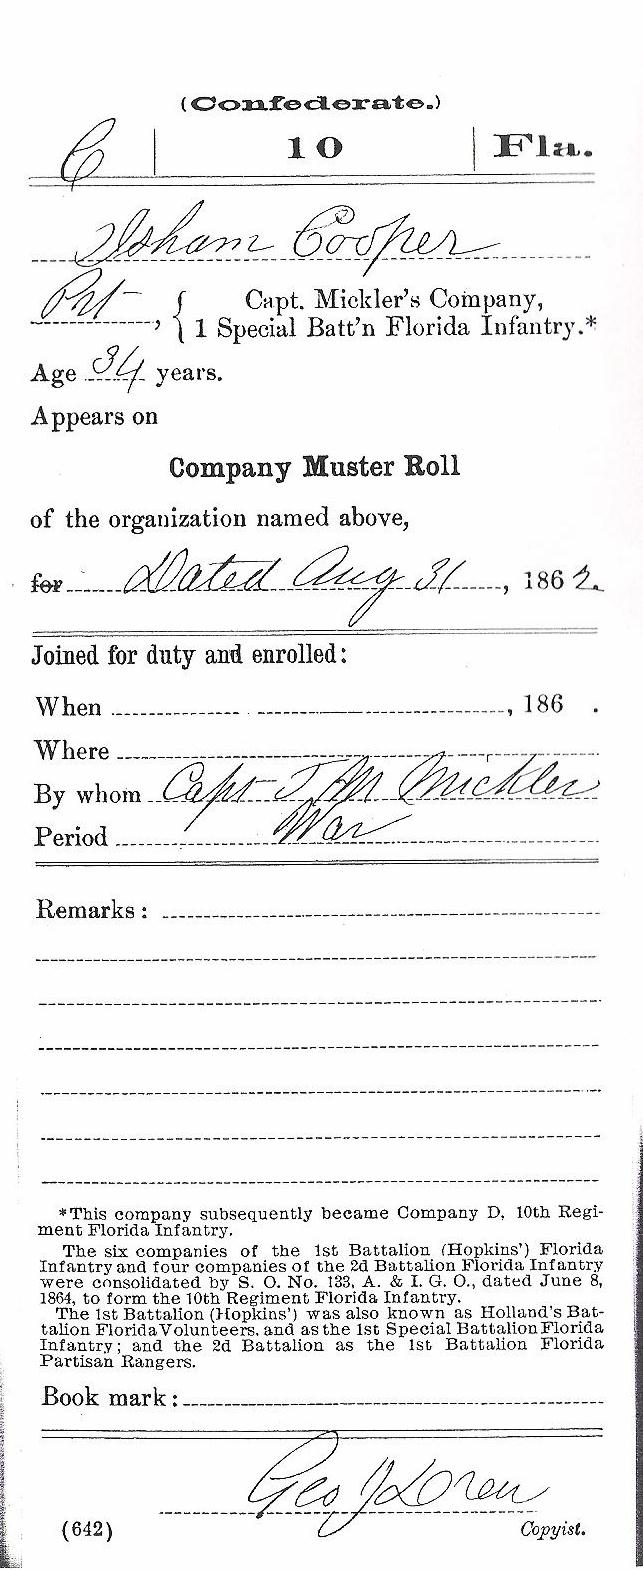 (Confederate.)
C | 10 | Fla.
Isham Cooper
Pvt, { Capt. Mickler's Company,
1 Special Batt'n Florida Infantry.*
Age 34 years.
Appears on
Company Muster Roll
of the organization named above,
for Dated Aug 31, 1862.
Joined for duty and enrolled:
When , 186 .
Where
By whom Capt J M Mickler
Period War
Remarks:
*This company subsequently became Company D, 10th Regi-
ment Florida Infantry.
The six companies of the 1st Battalion (Hopkins') Florida
Infantry and four companies of the 2d Battalion Florida Infantry
were consolidated by S. O. No. 133, A. & I. G. O., dated June 8,
1864, to form the 10th Regiment Florida Infantry.
The 1st Battalion (Hopkins') was also known as Holland's Bat-
talion Florida Volunteers, and as the 1st Special Battalion Florida
Infantry; and the 2d Battalion as the 1st Battalion Florida
Partisan Rangers.
Book mark:
Geo J
(642) Copyist.